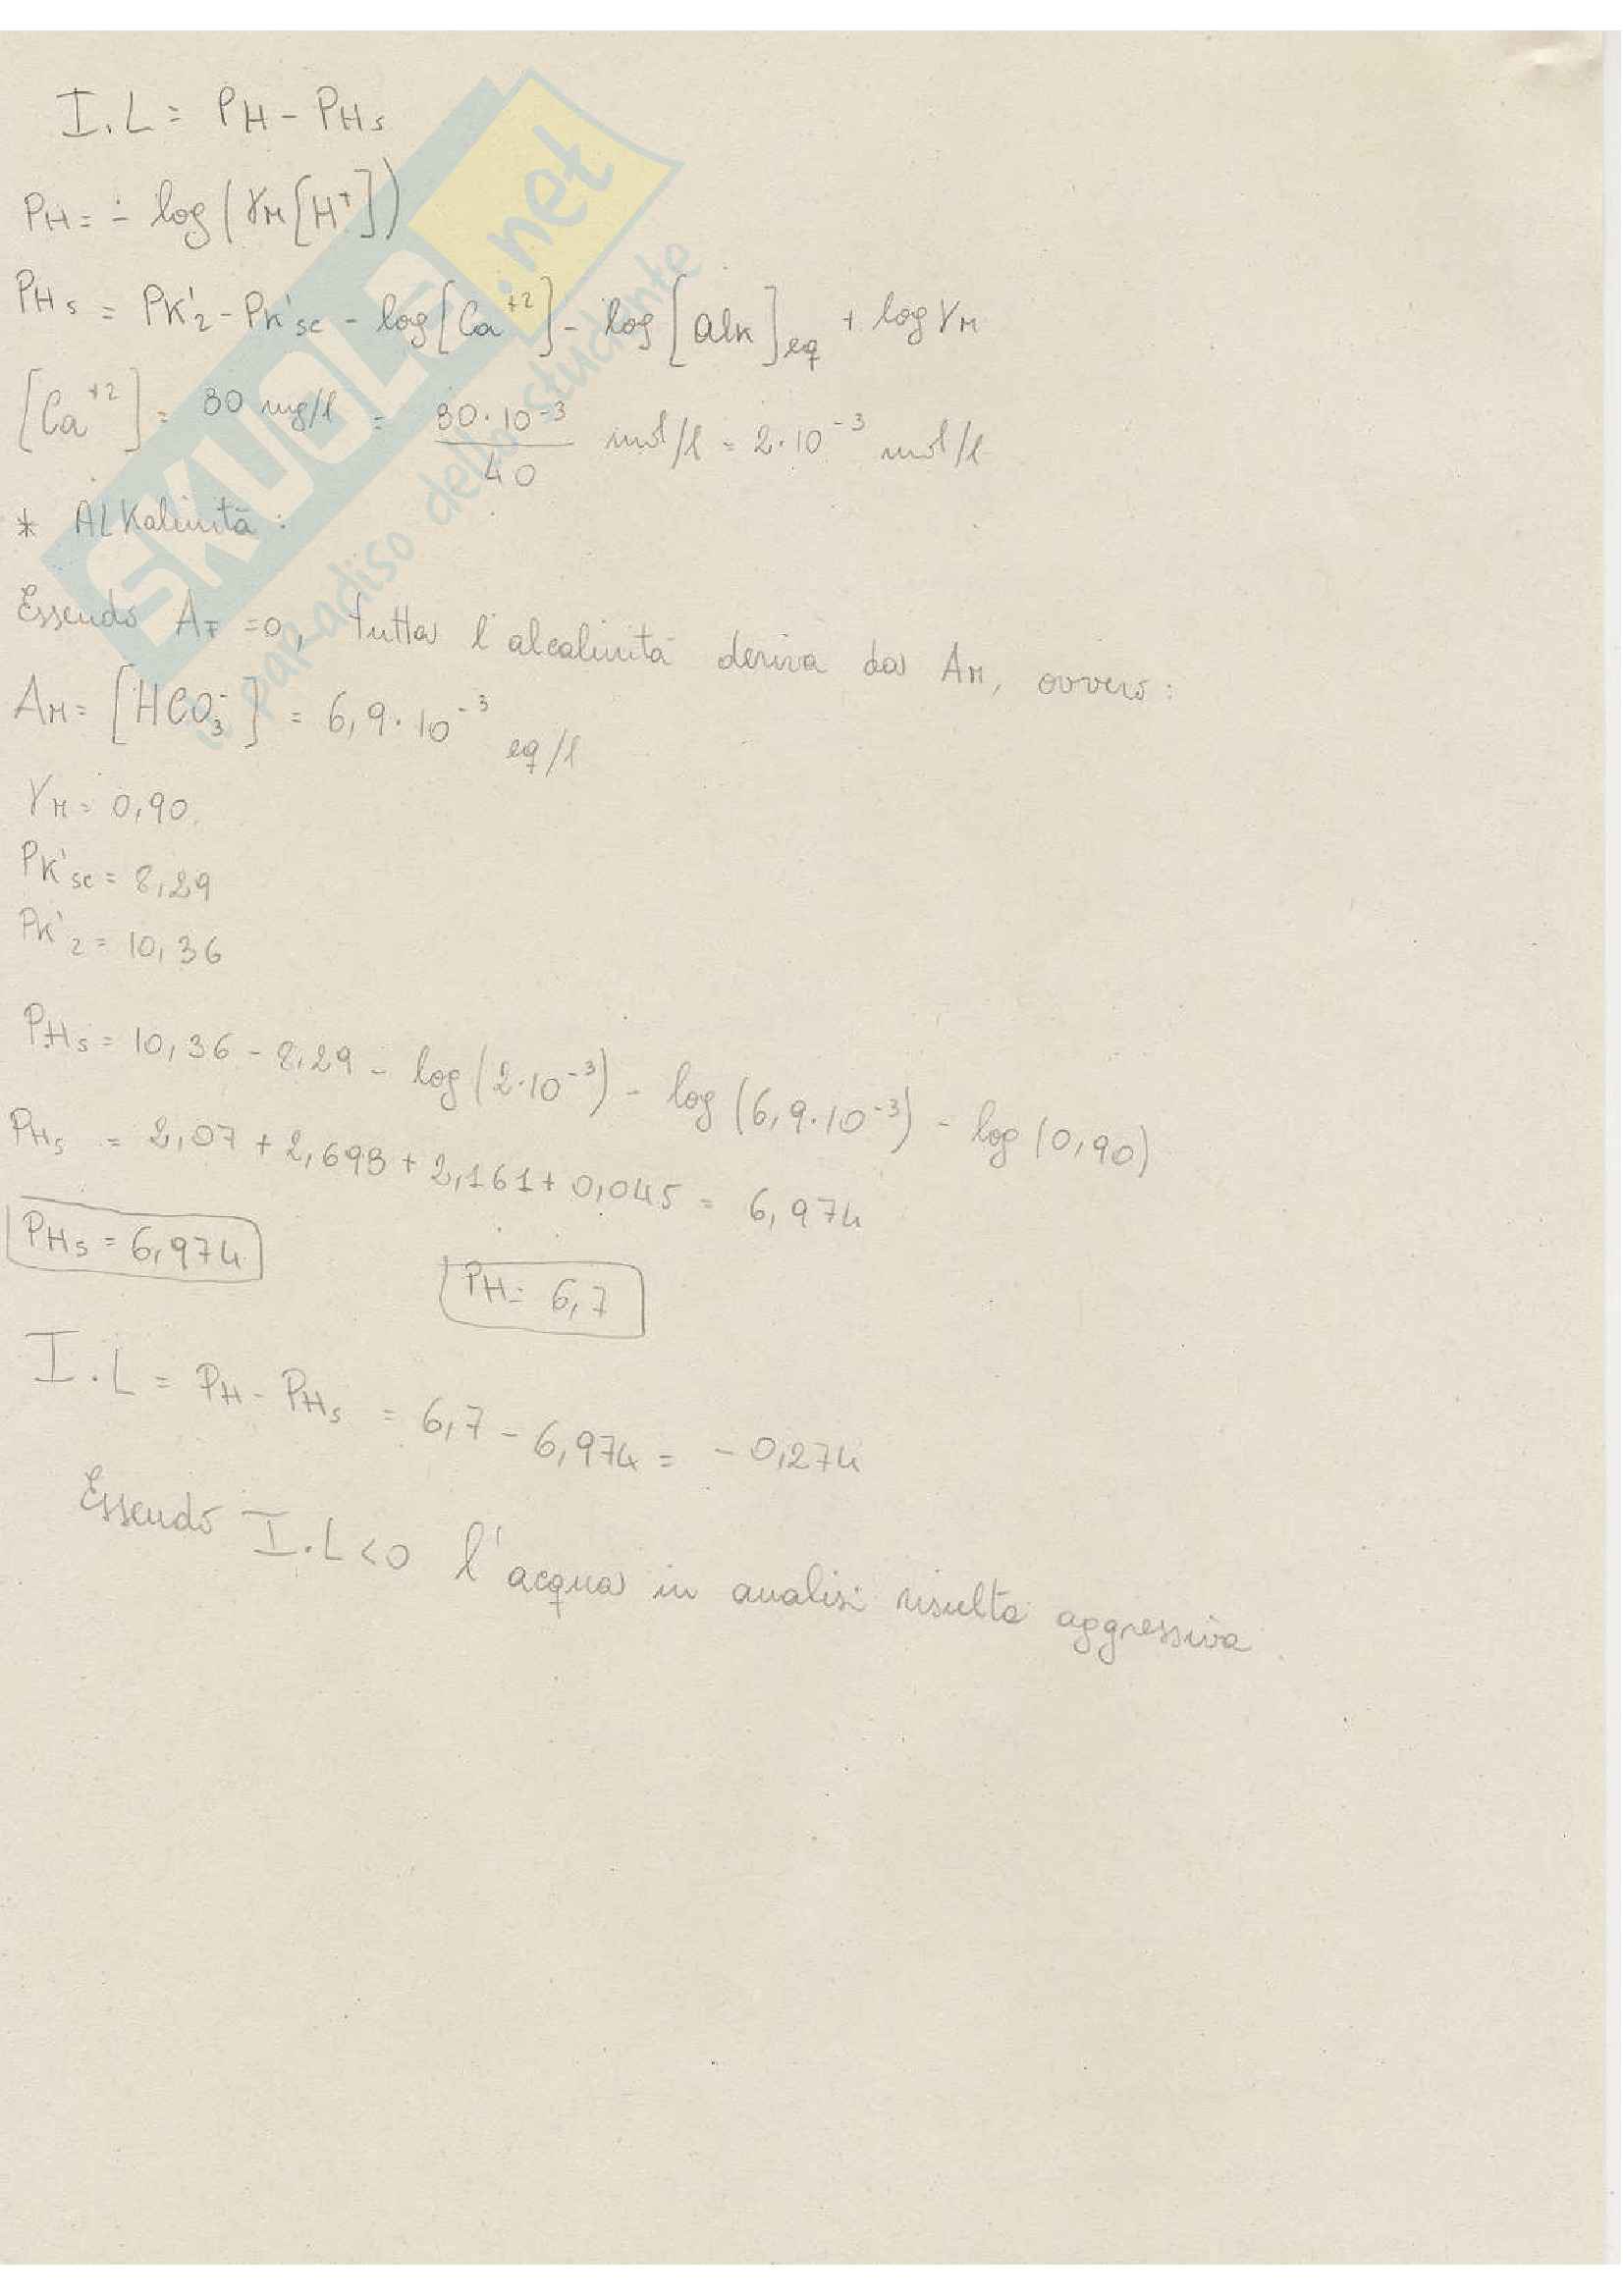 I.L = PH - PHs
PH = - log(γM[H⁺])
PHs = PK'₂ - PK'sc - log[Ca⁺²] - log[alk]eq + log γM
[Ca⁺²] = 80 mg/l = 80·10⁻³/40 mol/l = 2·10⁻³ mol/l
* ALKalinità:
Essendo AF = 0, tutta l'alcalinità deriva da AM, ovvero:
AM = [HCO₃⁻] = 6,9·10⁻³ eq/l
γM = 0,90
PK'sc = 8,29
PK'₂ = 10,36
PHs = 10,36 - 8,29 - log(2·10⁻³) - log(6,9·10⁻³) - log(0,90)
PHs = 2,07 + 2,698 + 2,161 + 0,045 = 6,974
PHs = 6,974
PH = 6,7
I.L = PH - PHs = 6,7 - 6,974 = -0,274
Essendo I.L < 0 l'acqua in analisi risulta aggressiva.
SKUOLA.net
il paradiso dello studente